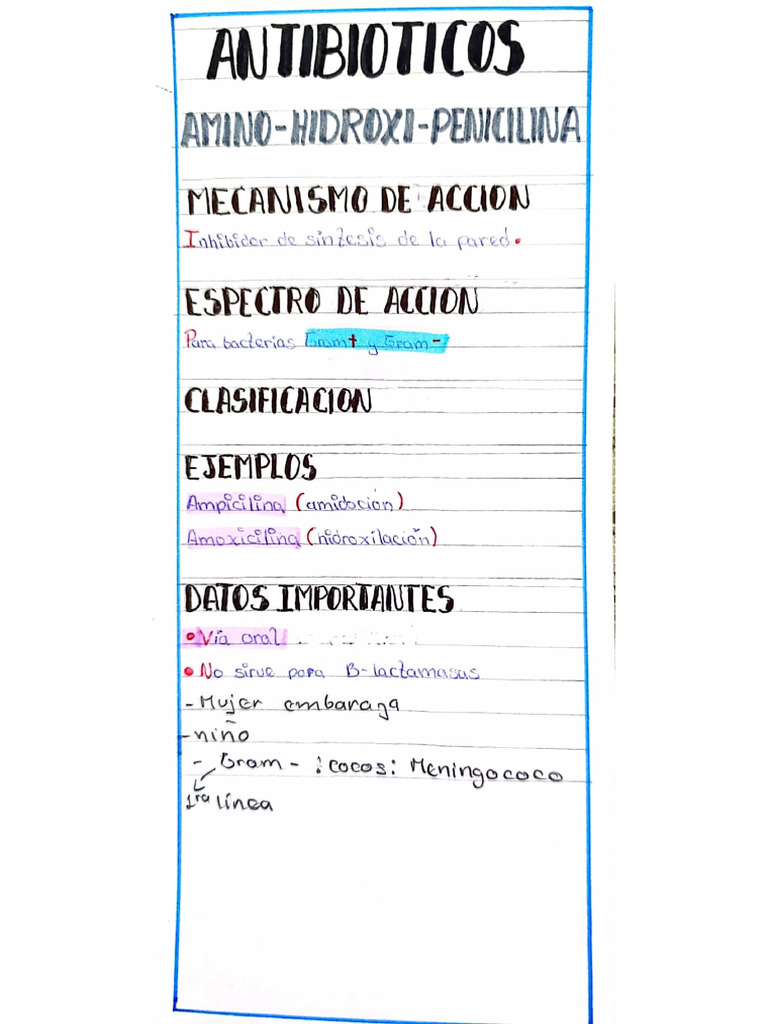 ANTIBIOTICOS
AMINO-HIDROXI-PENICILINA
MECANISMO DE ACCION
Inhibidor de síntesis de la pared.
ESPECTRO DE ACCION
Para bacterias Gram+ y Gram-
CLASIFICACION
EJEMPLOS
Ampicilina (amidación)
Amoxicilina (hidroxilación)
DATOS IMPORTANTES
• Vía oral
• No sirve para B-lactamasas
- Mujer embaraza
- niño
- Gram - : cocos: Meningococo
1ra línea